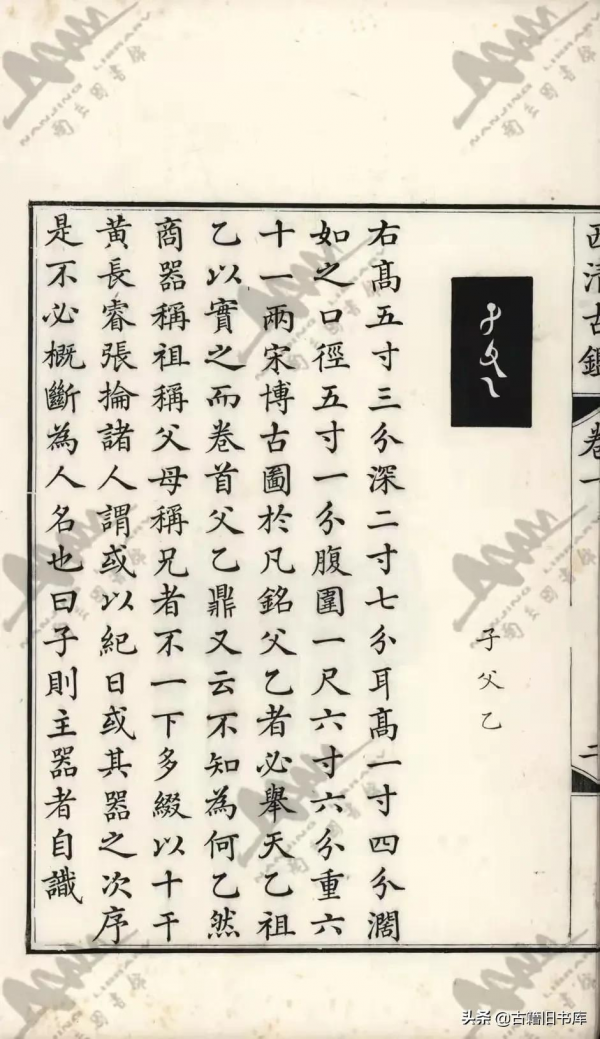 西清古鑑 卷一 二
子父乙
右髙五寸三分深二寸七分耳髙一寸四分濶
如之口徑五寸一分腹圍一尺六寸六分重六
十一兩宋博古圖於凡銘父乙者必舉天乙祖
乙以實之而卷首父乙鼎又云不知為何乙然
商器稱祖稱父母稱兄者不一下多綴以十干
黃長睿張掄諸人謂或以紀日或其器之次序
是不必概斷為人名也曰子則主器者自識
NANJING LIBRARY
头条 @古籍旧书库